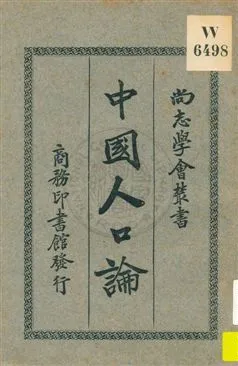 W
6498
尚志學會叢書
中國人口論
商務印書館發行